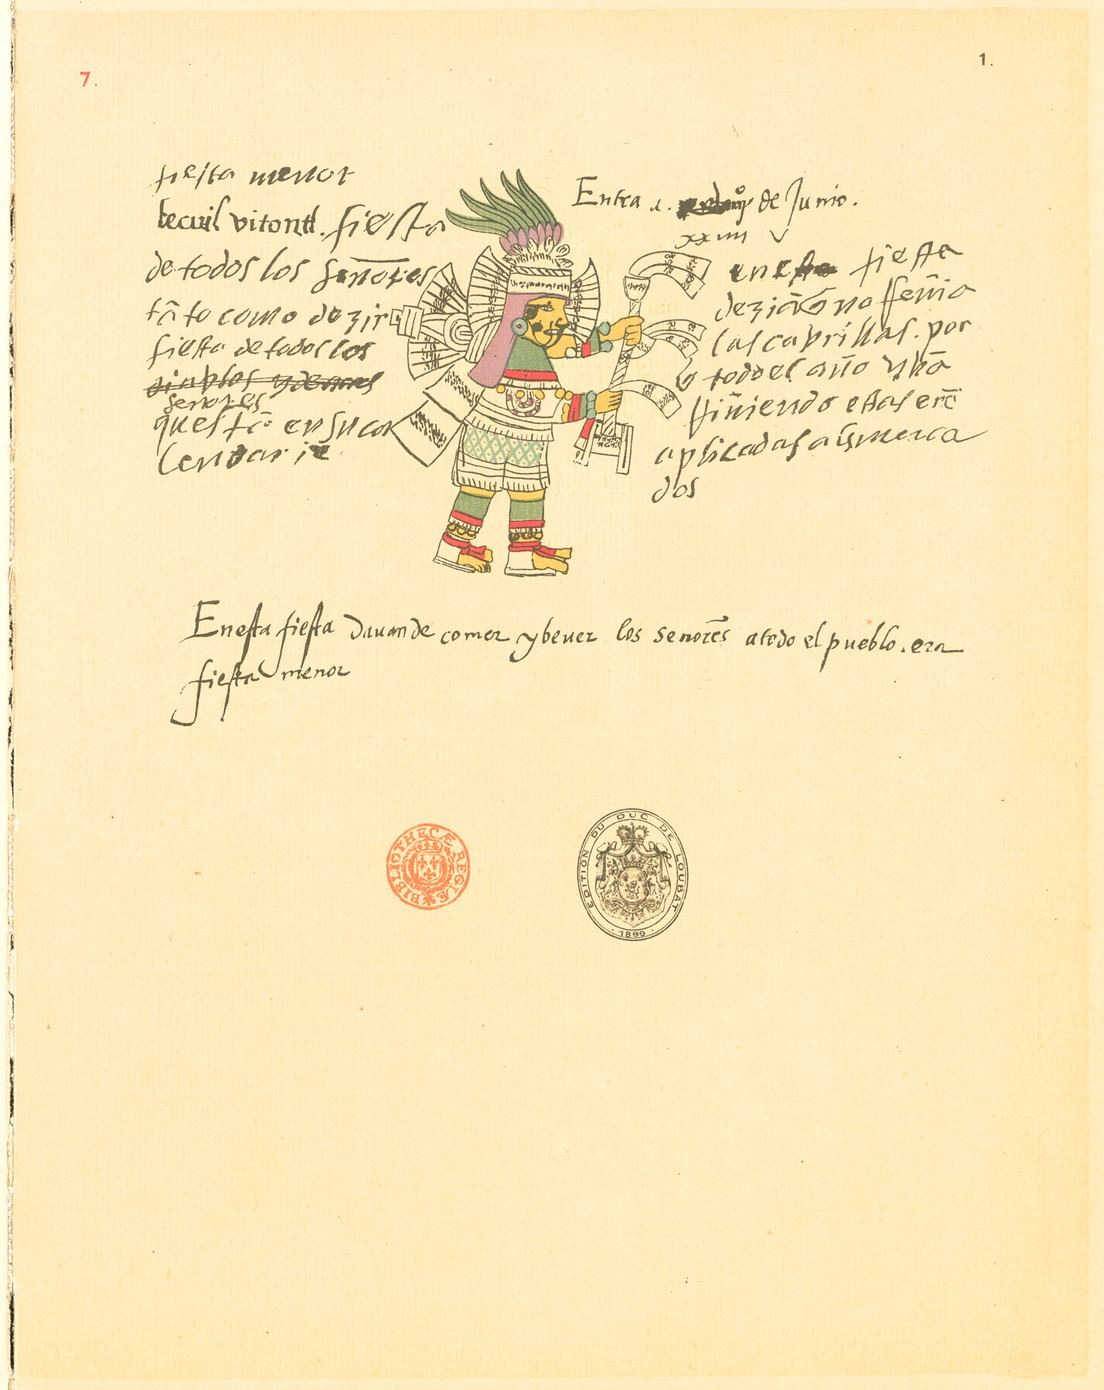 7.
1.
fiesta menor
tecuil vitontl. fiesta
de todos los señores
tãto como dezir
fiesta de todos los
diablos
señores
questã en su ca
lendario
Entra a. de Junio.
xxiiii
en esta fiesta
dezia q̃ no
las cabrillas. por
q todo el año
estas erã
aplicadas a
dos
En esta fiesta dauan de comer y beuer los señores a todo el pueblo. era
fiesta menor
BIBLIOTHECÆ REGIÆ
EDITION DU DUC DE LOUBAT
1899